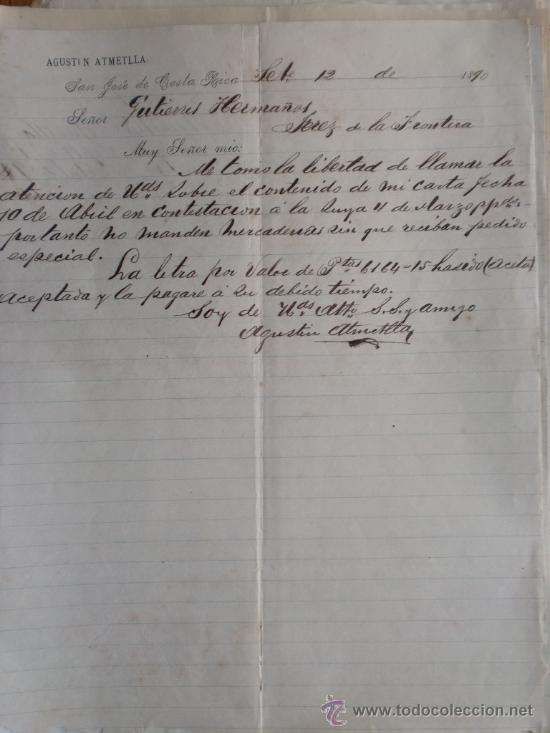 AGUSTIN ATMETLLA.
San José de Costa Rica Set. 12 de 1890
Señor Gutierres Hermaños,
Jerez de la Frontera
Muy Señor mio:
Me tomo la libertad de llamar la
atencion de Uds. sobre el contenido de mi carta fecha
10 de Abril en contestacion á la suya 11 de Marzo ppdo.
portanto no manden mercaderias sin que reciban pedido
especial.
La letra por valor de Ptas 6164-15 ha sido (Aceta)
aceptada y la pagare á su debido tiempo.
Soy de Uds. Atto. S.S. y amigo
Agustin Atmetlla
todocoleccion
www.todocoleccion.net